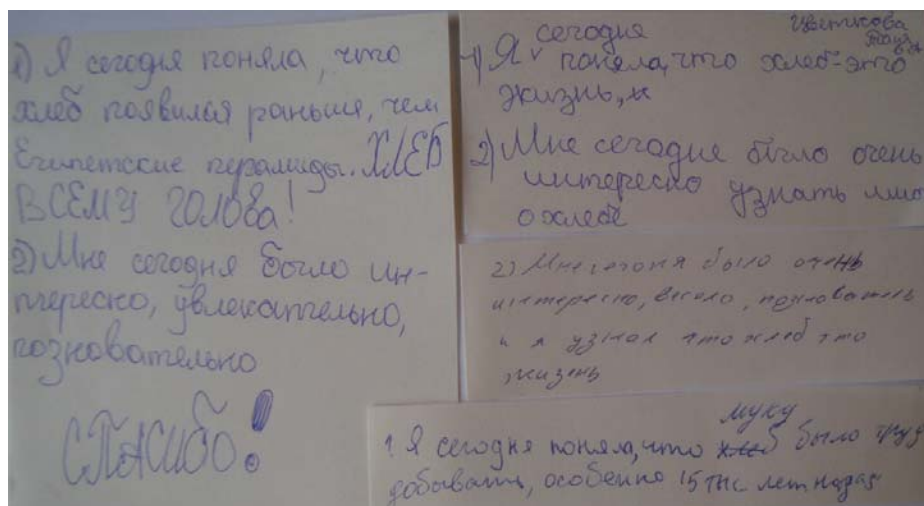 1) Я сегодня поняла, что
хлеб появился раньше, чем
Египетские перамиды. ХЛЕБ
ВСЕМУ ГОЛОВА!
2) Мне сегодня было ин-
тересно, увлекательно,
позновательно
СПАСИБО!
Цветкова
сегодня
1) Я поняла, что хлеб-это
жизнь, и
2) Мне сегодня было очень
интересно узнать
о хлебе
2) Мне сегоня было очень
интересно, весело,
и я узнал что хлеб это
жизень
муку
1. Я сегодня поняла, что хлеб было
добывать, особенно 15 тыс лет назад